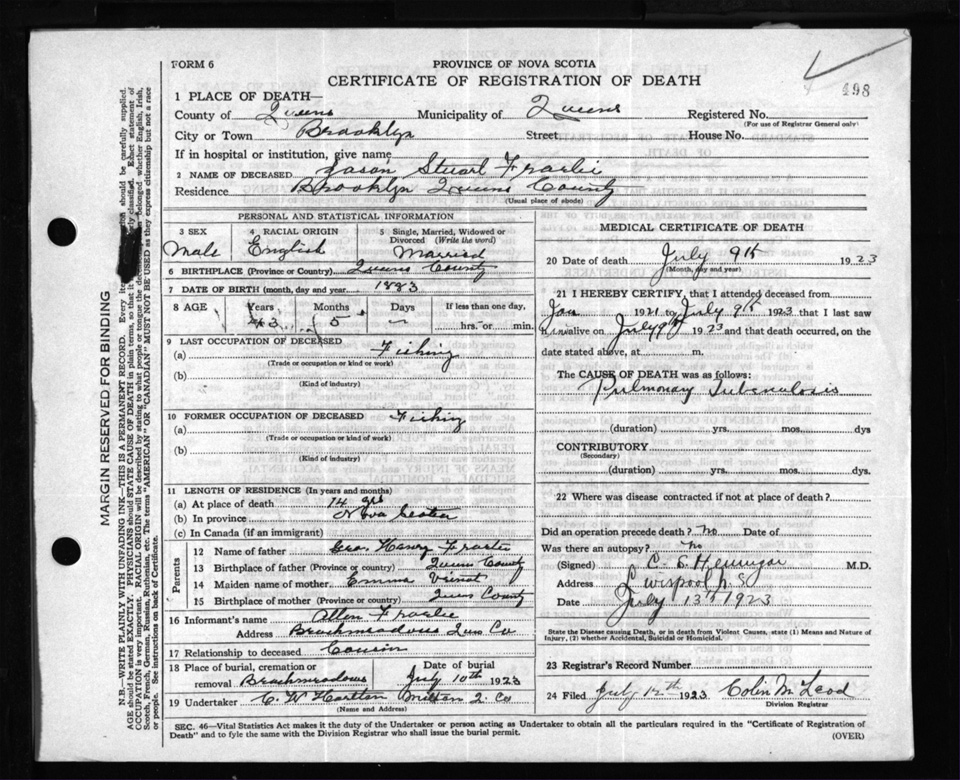 498
FORM 6
PROVINCE OF NOVA SCOTIA
CERTIFICATE OF REGISTRATION OF DEATH
1 PLACE OF DEATH—
County of Queens Municipality of Queens Registered No.
(For use of Registrar General only)
City or Town Brooklyn Street House No.
If in hospital or institution, give name
2 NAME OF DECEASED Jason Stuart Fralic
Residence Brooklyn Queens County
(Usual place of abode)
PERSONAL AND STATISTICAL INFORMATION
3 SEX 4 RACIAL ORIGIN 5 Single, Married, Widowed or Divorced (Write the word)
Male English Married
6 BIRTHPLACE (Province or Country) Queens County
7 DATE OF BIRTH (month, day and year) 1883
8 AGE Years Months Days If less than one day,
43 5 — hrs. or min.
9 LAST OCCUPATION OF DECEASED Fishing
(a)
(Trade or occupation or kind of work)
(b)
(Kind of industry)
10 FORMER OCCUPATION OF DECEASED Fishing
(a)
(Trade or occupation or kind of work)
(b)
(Kind of industry)
11 LENGTH OF RESIDENCE (In years and months)
(a) At place of death 14 yrs
(b) In province Nova Scotia
(c) In Canada (if an immigrant)
Parents
12 Name of father Geo. Henry Fralic
13 Birthplace of father (Province or country) Queens County
14 Maiden name of mother Emma
15 Birthplace of mother (Province or country) Queens County
16 Informant's name Allen Fralic
Address Beachmeadows Queens Co
17 Relationship to deceased Cousin
18 Place of burial, cremation or removal Beachmeadows Date of burial July 10th 1923
19 Undertaker C W Milton Q. Co
(Name and Address)
MEDICAL CERTIFICATE OF DEATH
20 Date of death July 9th 1923
(Month, day and year)
21 I HEREBY CERTIFY, that I attended deceased from
Jan 1921 to July 9th 1923 that I last saw
him alive on July 9th 1923 and that death occurred, on the
date stated above, at m.
The CAUSE OF DEATH was as follows:
Pulmonary Tuberculosis
(duration) yrs. mos. dys
CONTRIBUTORY
(Secondary)
(duration) yrs. mos. dys.
22 Where was disease contracted if not at place of death?
Did an operation precede death? no Date of
Was there an autopsy? no
(Signed) C. S. Hennigar M.D.
Address Liverpool N.S.
Date July 13th 1923
State the Disease causing Death, or in death from Violent Causes, state (1) Means and Nature of
Injury, (2) whether Accidental, Suicidal or Homicidal.
23 Registrar's Record Number
24 Filed July 12th 1923 Colin McLeod
Division Registrar
SEC. 46—Vital Statistics Act makes it the duty of the Undertaker or person acting as Undertaker to obtain all the particulars required in the "Certificate of Registration of
Death" and to fyle the same with the Division Registrar who shall issue the burial permit.
(OVER)
MARGIN RESERVED FOR BINDING
N.B.—WRITE PLAINLY WITH UNFADING INK—THIS IS A PERMANENT RECORD. Every item should be carefully supplied.
AGE should be stated EXACTLY. PHYSICIANS should STATE CAUSE OF DEATH in plain terms, so that it classified. Exact statement of
OCCUPATION is very important. RACIAL ORIGIN will be described by stating to what people or tongue the deceased belonged, whether English, Irish,
Scotch, French, German, Russian, Ruthenian, etc. The terms "AMERICAN" OR "CANADIAN" MUST NOT BE USED as they express citizenship but not a race
or people. See instructions on back of Certificate.